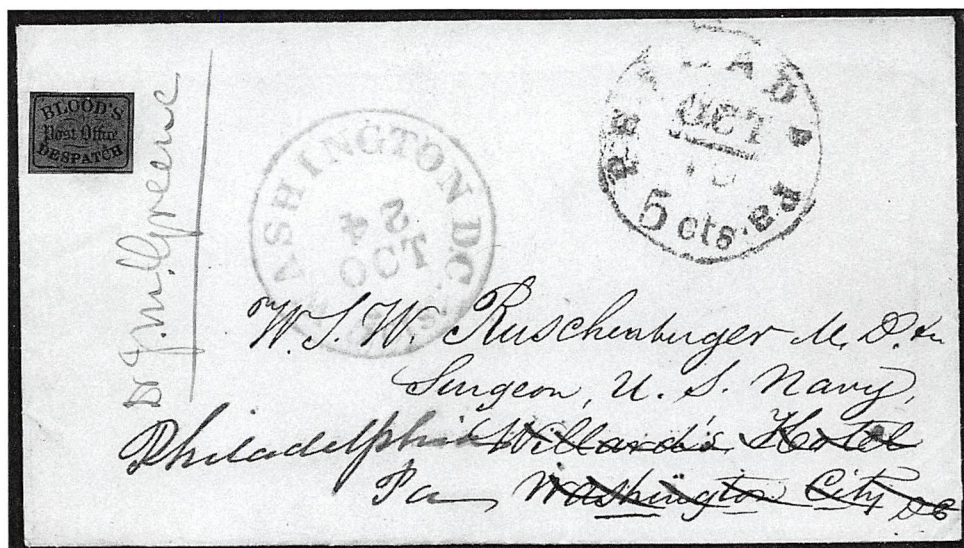 BLOOD'S
Post Office
DESPATCH
Dr J. M. Greene
WASHINGTON D.C.
2
4
OCT
OCT
5 cts.
W. S. W. Ruschenburger M. D.
Surgeon, U. S. Navy,
Philadelphia Willard's Hotel
Pa Washington City DC